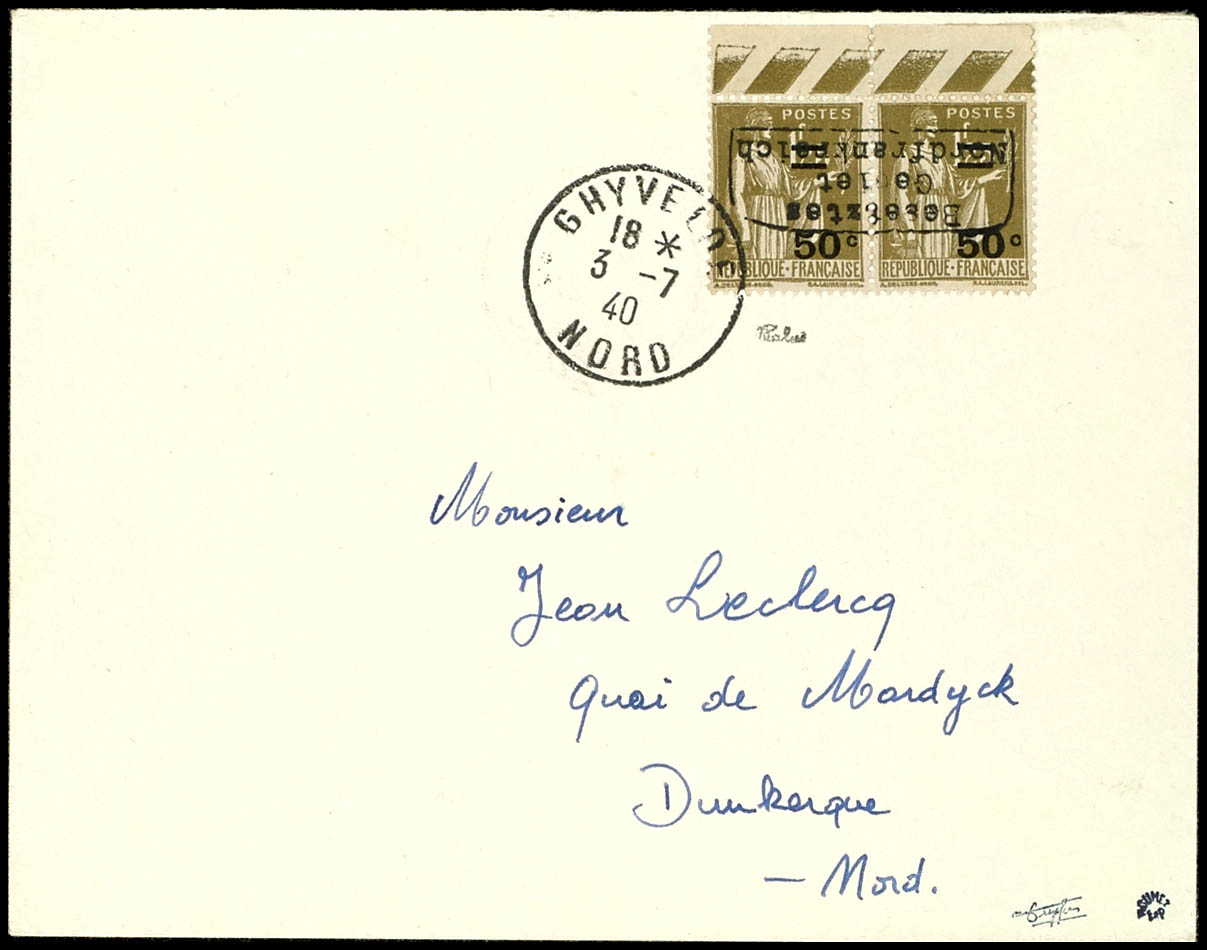 POSTES POSTES
Besetztes
Gebiet
Nordfrankreich
50c 50c
REPUBLIQUE·FRANÇAISE REPUBLIQUE·FRANÇAISE
GHYVELDE
18 *
3 -7
40
NORD
Monsieur
Jean Leclercq
Quai de Mardyck
Dunkerque
— Nord.
ROUMET